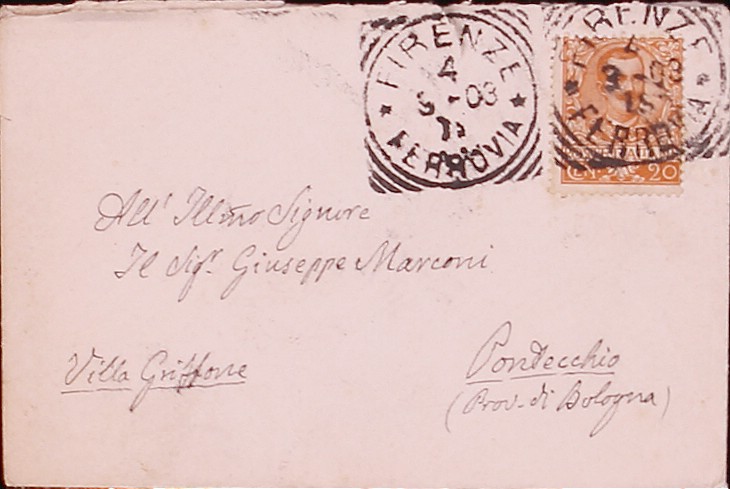 FIRENZE
4
3-03
FERROVIA
FIRENZE
4
3-03
FERROVIA
CEN. 20
All' Illmo Signore
Il Sigr. Giuseppe Marconi
Villa Griffone
Pontecchio
(Prov. di Bologna)